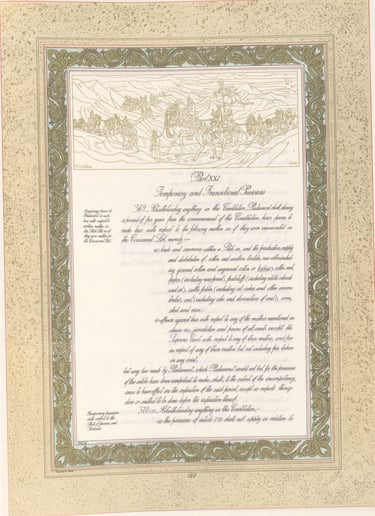 Part XXI
Temporary and Transitional Provisions
Temporary power to
Parliament to make
laws with respect to
certain matters in
the State List as if
they were matters in
the Concurrent List.
369. Notwithstanding anything in this Constitution, Parliament shall, during
a period of five years from the commencement of this Constitution, have power to
make laws with respect to the following matters as if they were enumerated in
the Concurrent List, namely:—
(a) trade and commerce within a State in, and the production, supply
and distribution of, cotton and woollen textiles, raw cotton (includ-
ing ginned cotton and unginned cotton or kapas), cotton seed,
paper (including newsprint), foodstuffs (including edible oilseeds
and oil), cattle fodder (including oil-cakes and other concen-
trates), coal (including coke and derivatives of coal), iron,
steel and mica;
(b) offences against laws with respect to any of the matters mentioned in
clause (a), jurisdiction and powers of all courts except the
Supreme Court with respect to any of those matters, and fees
in respect of any of those matters but not including fees taken
in any court;
but any law made by Parliament, which Parliament would not but for the provisions
of this article have been competent to make, shall, to the extent of the incompetency,
cease to have effect on the expiration of the said period, except as respects things
done or omitted to be done before the expiration thereof.
Temporary provisions
with respect to the
State of Jammu and
Kashmir.
370. (1) Notwithstanding anything in this Constitution,—
(a) the provisions of article 238 shall not apply in relation to